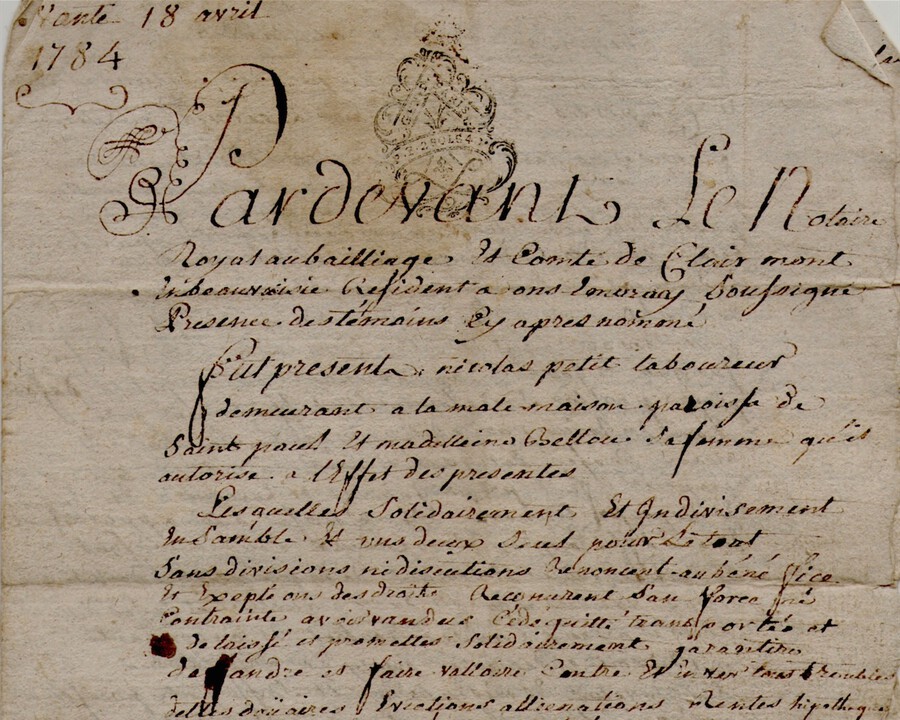 Vente 18 avril
1784
Pardevant Le Notaire
Royal au bailliage Et Comté de Clairmont
En beauvoisie Résident a ons Soussigné
Presence des témoins Cy apres nommé
fut present nicolas petit laboureur
demeurant a la male maison paroisse de
Saint paul Et madeleine Bellou Sa femme qu'il
autorise a l'Effet des presentes
Lesquelles Solidairement Et Indivisement
Ensamble Et un deux Seul pour Le tout
Sans divisions ni discutions Renoncent au béné fice
Et Exeptions des droits Reconurent San force né
Contrainte avoir vandus Cédé quitté transportée et
delaissé et promettes Solidairement garantire
deffandre et faire valloire Contre Et Enver tous troubles
dettes doüaires Evictions allienations Rentes hipotheques